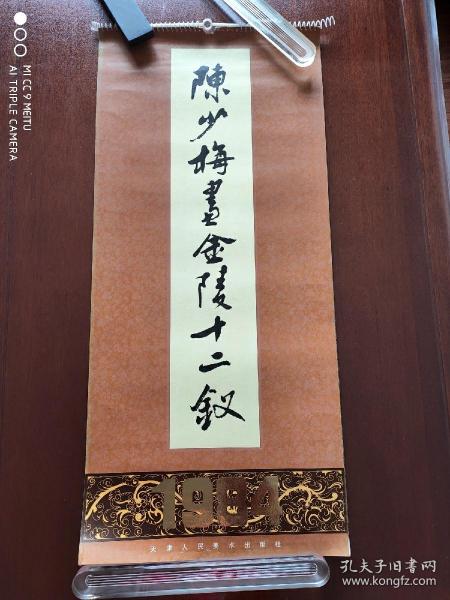 陳少梅畫金陵十二釵
1984
天津人民美术出版社
MI CC 9 MEITU
AI TRIPLE CAMERA
孔夫子旧书网
www.kongfz.com